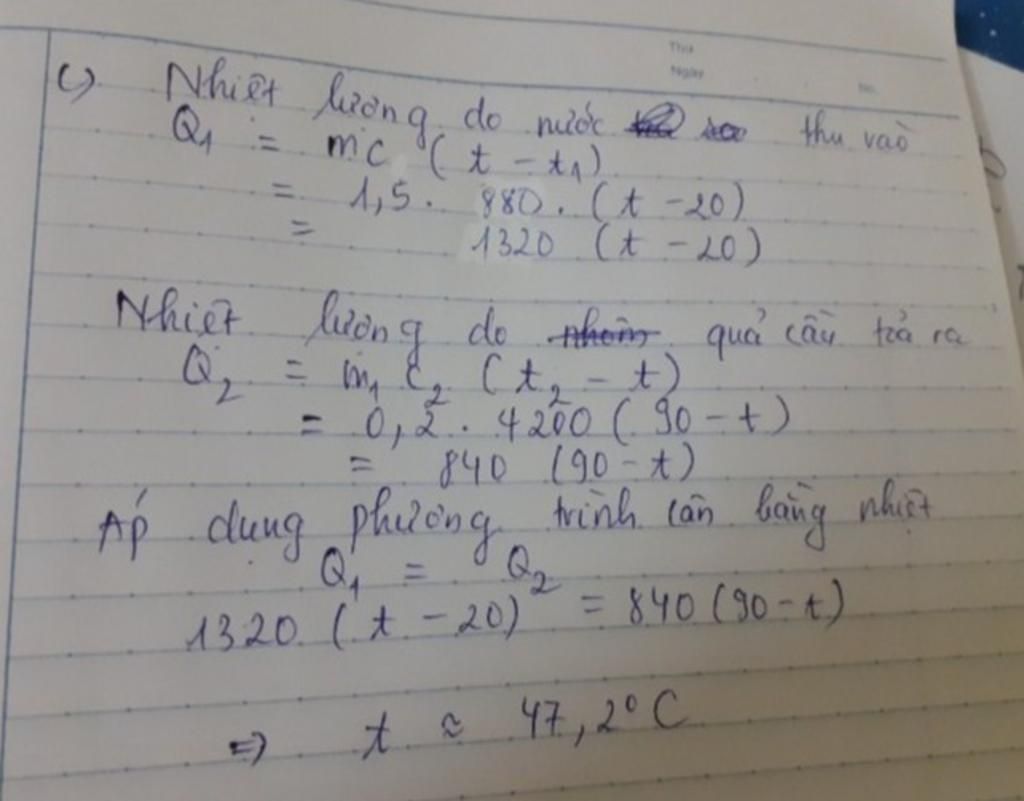 Thứ
Ngày
No.
c) Nhiệt lượng do nước thu vào
Q₁ = mc (t - t₁)
= 1,5 . 880 . (t - 20)
= 1320 (t - 20)
Nhiệt lượng do quả cầu toả ra
Q₂ = m₁ c₂ (t₂ - t)
= 0,2 . 4200 (90 - t)
= 840 (90 - t)
Áp dụng phương trình cân bằng nhiệt
Q₁ = Q₂
1320 (t - 20) = 840 (90 - t)
=> t ≈ 47,2° C